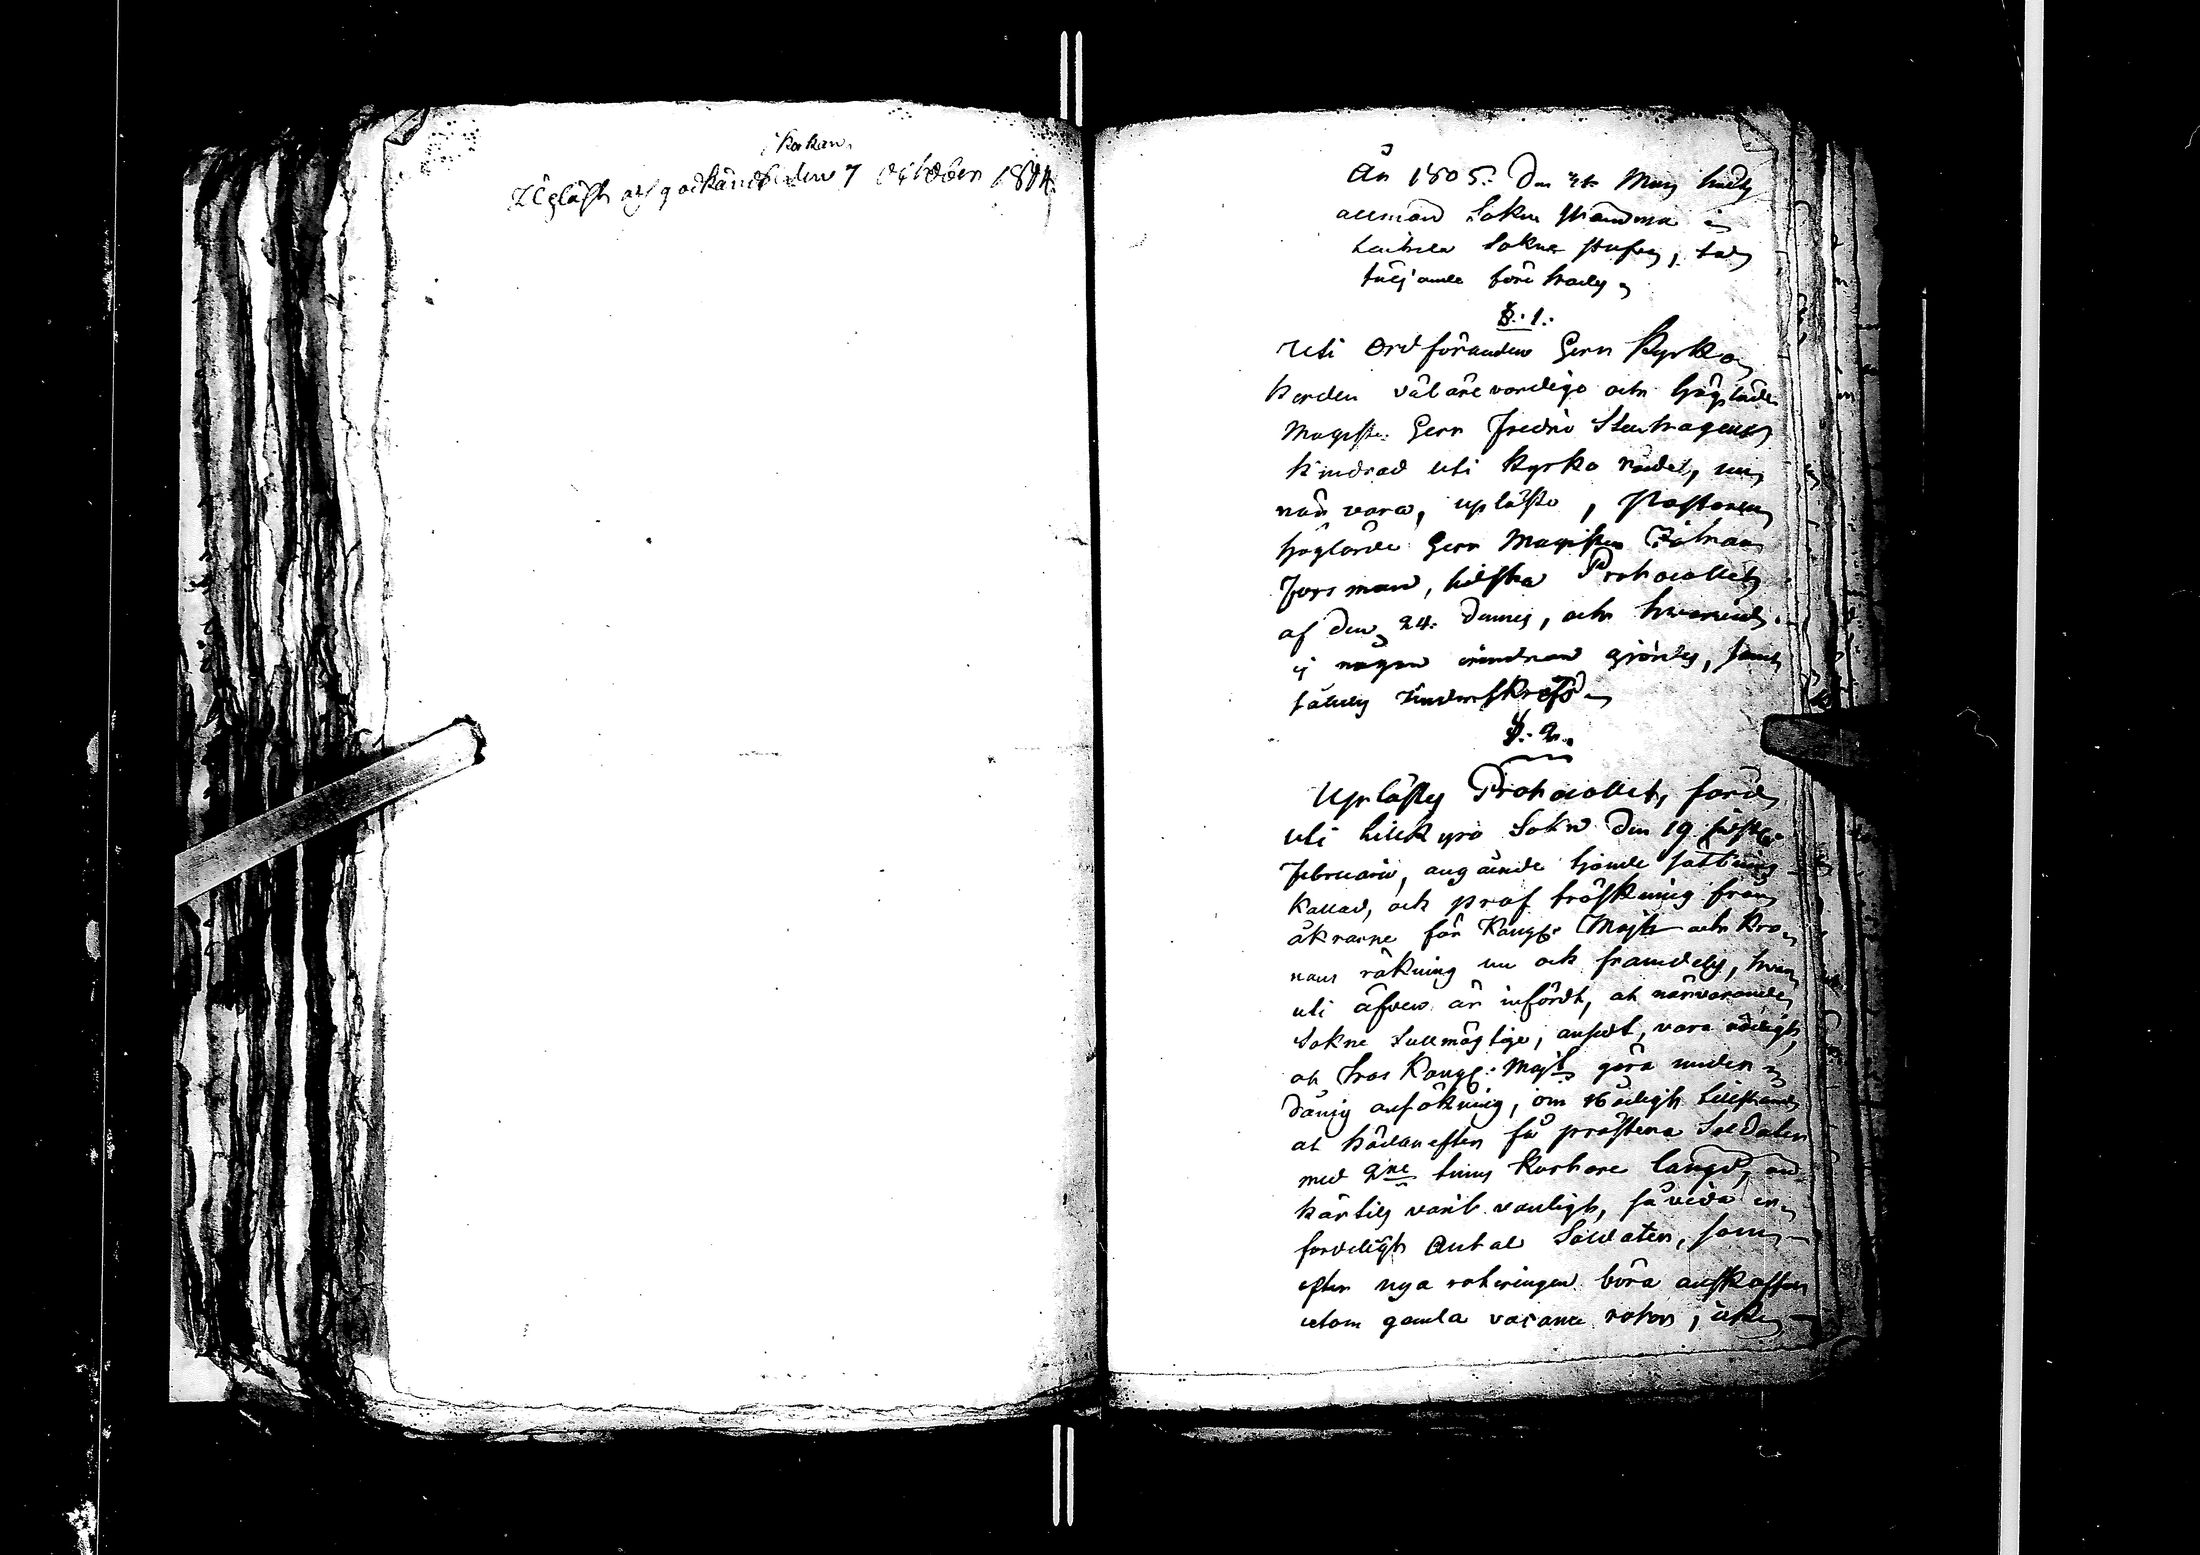 Upläst och godkändt den 7 october 1804
År 1805. Den Maij hölts
allmän Sokne Stämma i
Sokne stufvan, då
följande förehades
§. 1.
Uti Ordföranden Herr Kyrko
herden välärevördige och höglärde
Magister Herr Fredric Stenhagens
hindrad uti kyrko rådet,
när varo, upläste, Pastoren
höglärde Herr Magister
Forsman, sidsta Protocollet
af den 24. dennes, och hvarvid
ej någon ändran gjordes, samt
således underskrefs
§. 2.
Uplästes Protocollet, fördt
uti Lillkyro Sokn den 19 sidstl.
Februarii, angående hjonde sättning
kallad, och prof tröskning från
åkrarne för Kongl. Majts och Kro
nans räkning nu och framdeles, hvar
uti äfven är infördt, at närvarande
Sokne fullmägtige, ansedt vara nödigt,
at hos Kongl. Majt göra under
dånig ansökning, om nådigt tillstånd
at hädanefter få prestera Soldater
med 2ne tums kortare längd, än
härtils varit vanligt, så vida er
forderligt antal Soldater, som
efter nya roteringen böra anskaffas
utom gamla vacante rotor, icke